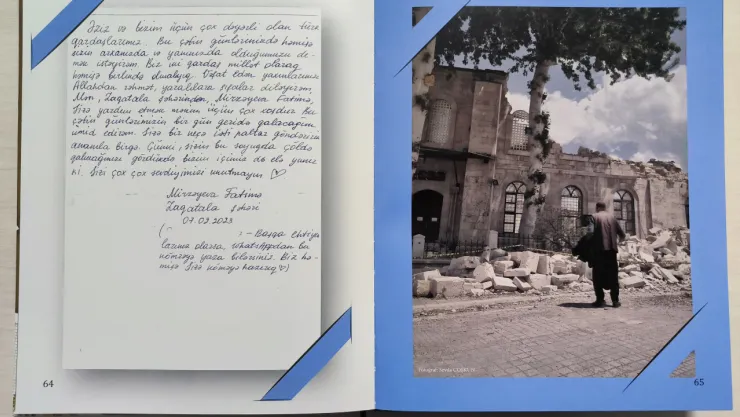 Əziz və bizim üçün çox dəyərli olan türk
qardaşlarımız. Bu çətin günlərinizdə həmişə
sizin arxanızda və yanınızda olduğumuzu de-
mək istəyirəm. Biz iki qardaş millət olaraq
həmişə birlikdə olmalıyıq. Vəfat edən yaxınlarınıza
Allahdan rəhmət, yaralılara şəfalar diləyirəm.
Mən, Zaqatala şəhərindən, Mirzəyeva Fatimə,
Sizə yardım etmək mənim üçün çox xoşdur. Bu
çətin günlərimizin bir gün geridə qalacağını
ümid edirəm. Sizə bir neçə isti paltar göndərirəm
anamla birgə. Çünki, sizin bu soyuqda çöldə
qalacağınızı gördükdə bizim içimiz də elə yanır
ki. Sizi çox çox sevdiyimizi unutmayın ♡
Mirzəyeva Fatimə
Zaqatala şəhəri
07.02.2023
( :- Başqa ehtiya-
larınız olarsa, WhatsAppdan bu
nömrəyə yaza bilərsiniz. Biz hə-
mişə Sizə köməyə hazırıq ♡)
64
65